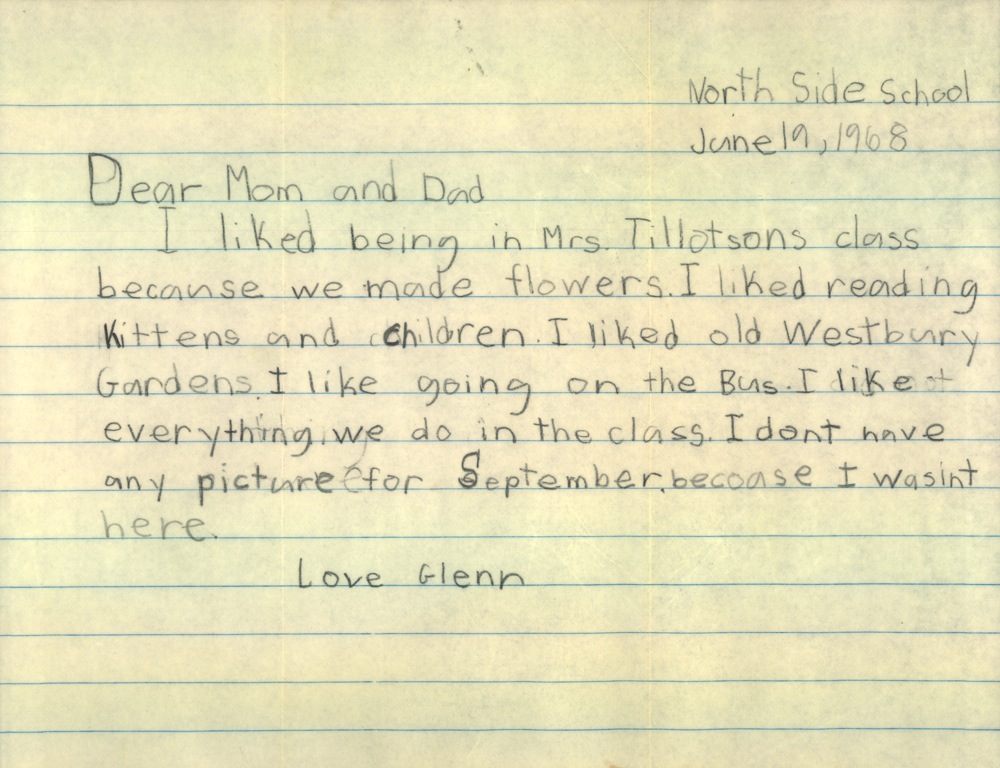 North Side School
June 19, 1968
Dear Mom and Dad
I liked being in Mrs. Tillotsons class
because we made flowers. I liked reading
Kittens and children. I liked old Westbury
Gardens. I like going on the Bus. I like
everything. we do in the class. I dont have
any picture for September. becoase I wasint
here.
Love Glenn